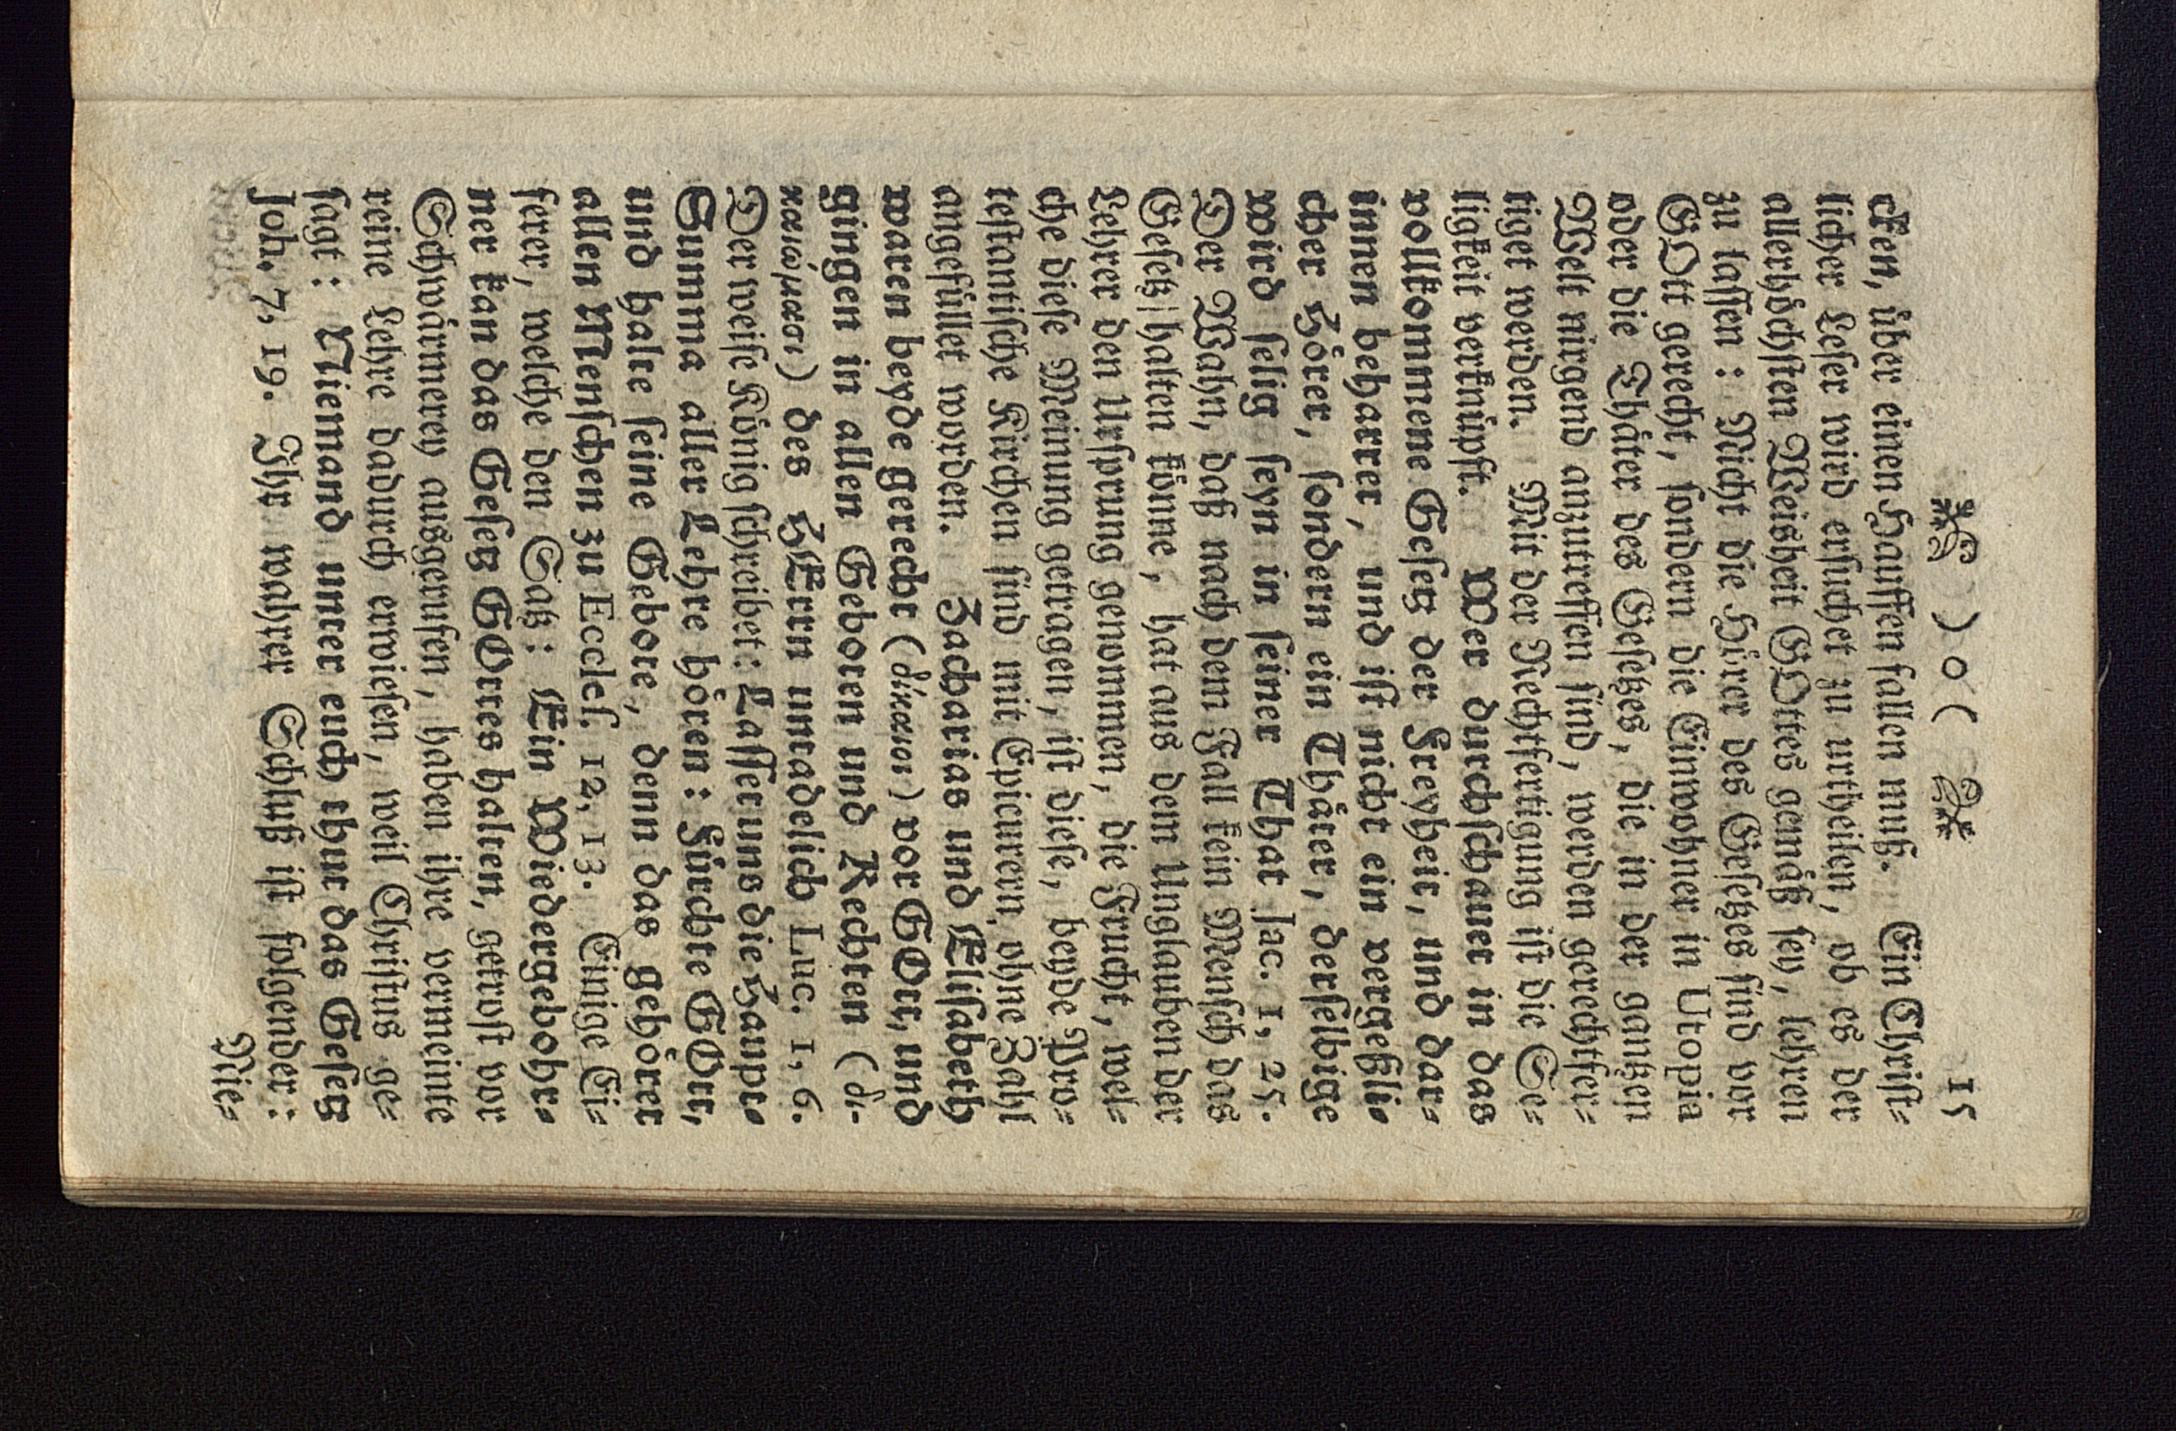 ) o (
15
cken, über einen Hauffen fallen muß. Ein Christ-
licher Leser wird ersuchet zu urtheilen, ob es der
allerhöchsten Weisheit GOttes gemäß sey, lehren
zu lassen: Nicht die Hörer des Gesetzes sind vor
GOtt gerecht, sondern die Einwohner in Utopia
oder die Thäter des Gesetzes, die in der gantzen
Welt nirgend anzutreffen sind, werden gerechtfer-
tiget werden. Mit der Rechtfertigung ist die See-
ligkeit verknüpft. Wer durchschauet in das
vollkommene Gesetz der Freyheit, und dar-
innen beharret, und ist nicht ein vergeßli-
cher Hörer, sondern ein Thäter, derselbige
wird selig seyn in seiner That Jac. 1, 25.
Der Wahn, daß nach dem Fall kein Mensch das
Gesetz halten könne, hat aus dem Unglauben der
Lehrer den Ursprung genommen, die Frucht, wel-
che diese Meinung getragen, ist diese, beyde Pro-
testantische Kirchen sind mit Epicurern ohne Zahl
angefüllet worden. Zacharias und Elisabeth
waren beyde gerecht (δίκαιοι) vor GOtt, und
gingen in allen Geboten und Rechten (δι-
καιώμασι) des HErrn untadelich Luc. 1, 6.
Der weise König schreibet: Lasset uns die Haupt-
Summa aller Lehre hören: Fürchte GOtt,
und halte seine Gebote, denn das gehöret
allen Menschen zu Eccles. 12, 13. Einige Ei-
ferer, welche den Satz: Ein Wiedergebohr-
ner kan das Gesetz GOttes halten, getrost vor
Schwärmerey ausgerufen, haben ihre vermeinte
reine Lehre dadurch erwiesen, weil Christus ge-
sagt: Niemand unter euch thut das Gesetz
Joh. 7, 19. Ihr wahrer Schluß ist folgender:
Nie-